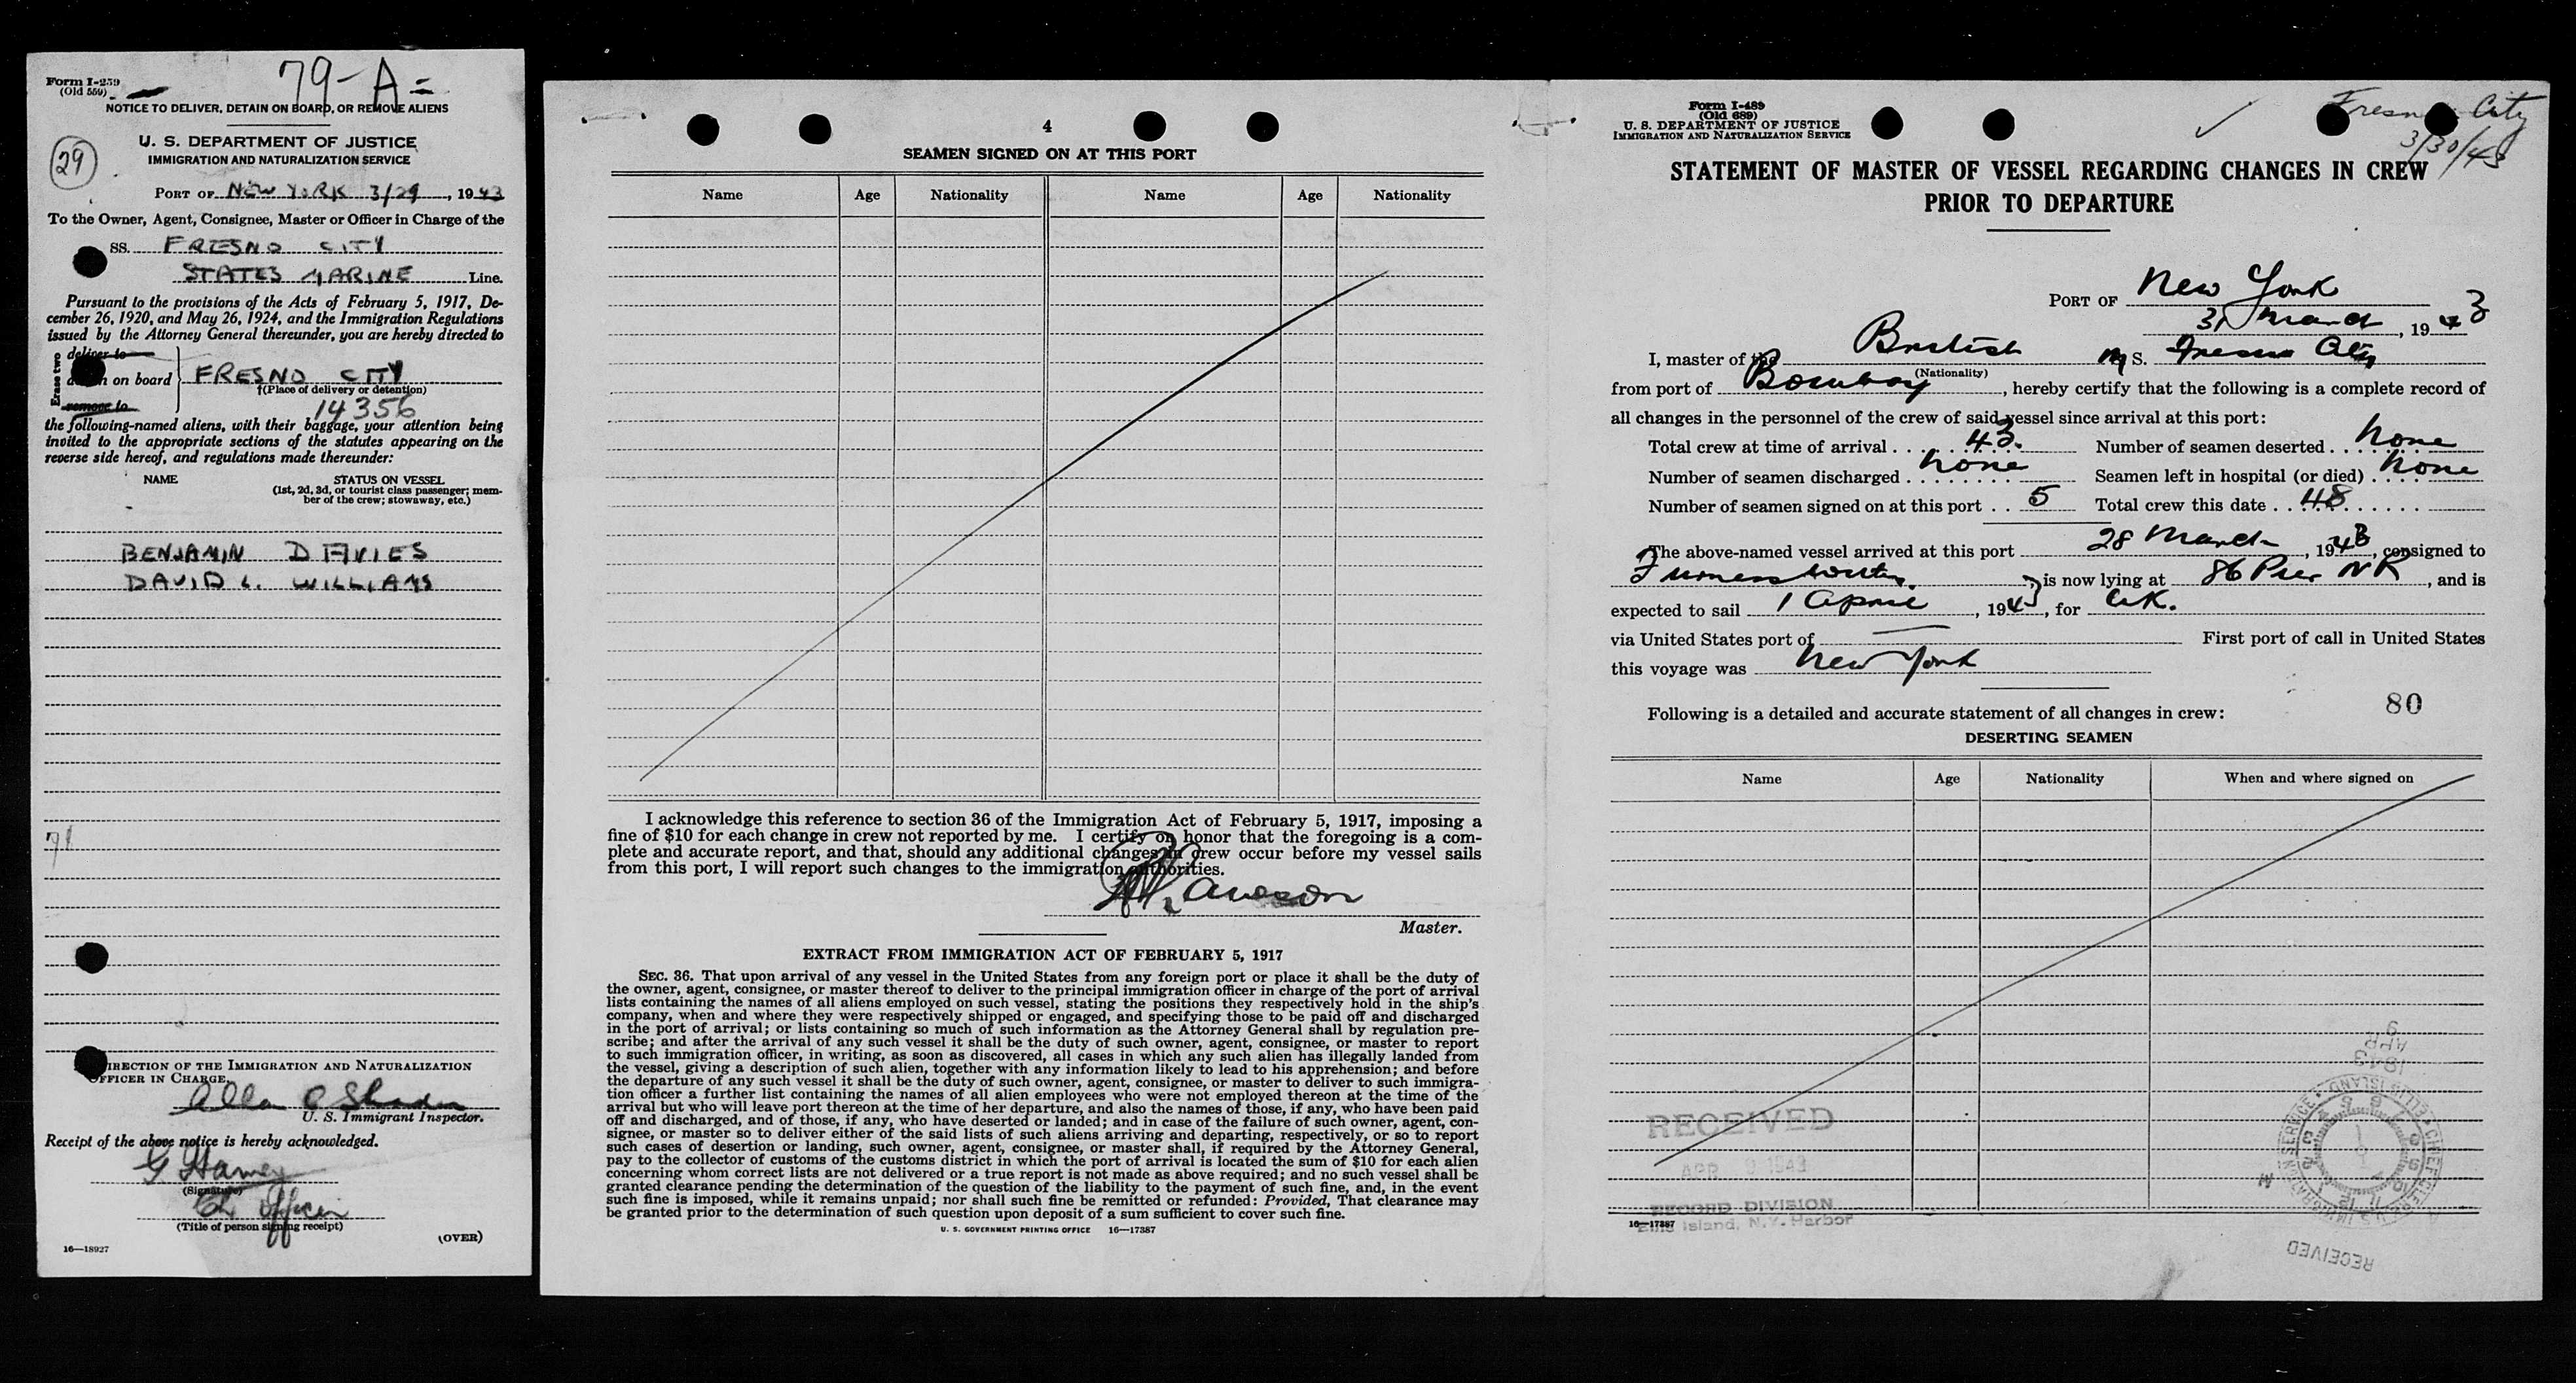 79-A=
Form I-259
(Old 559)
NOTICE TO DELIVER, DETAIN ON BOARD, OR REMOVE ALIENS
29
U. S. DEPARTMENT OF JUSTICE
IMMIGRATION AND NATURALIZATION SERVICE
PORT OF NEW YORK 3/29, 1943
To the Owner, Agent, Consignee, Master or Officer in Charge of the
SS. FRESNO CITY
STATES MARINE Line.
Pursuant to the provisions of the Acts of February 5, 1917, De-
cember 26, 1920, and May 26, 1924, and the Immigration Regulations
issued by the Attorney General thereunder, you are hereby directed to
Erase two
deliver to
on board FRESNO CITY
†(Place of delivery or detention)
remove to
14356
the following-named aliens, with their baggage, your attention being
invited to the appropriate sections of the statutes appearing on the
reverse side hereof, and regulations made thereunder:
NAME STATUS ON VESSEL
(1st, 2d, 3d, or tourist class passenger; mem-
ber of the crew; stowaway, etc.)
BENJAMIN DAVIES
DAVID L. WILLIAMS
71
DIRECTION OF THE IMMIGRATION AND NATURALIZATION
OFFICER IN CHARGE.
U. S. Immigrant Inspector.
Receipt of the above notice is hereby acknowledged.
(Signature)
Ch Officer
(Title of person signing receipt)
(OVER)
16—18927
4
SEAMEN SIGNED ON AT THIS PORT
Name Age Nationality Name Age Nationality
I acknowledge this reference to section 36 of the Immigration Act of February 5, 1917, imposing a
fine of $10 for each change in crew not reported by me. I certify on honor that the foregoing is a com-
plete and accurate report, and that, should any additional changes in crew occur before my vessel sails
from this port, I will report such changes to the immigration authorities.
Lawson
Master.
EXTRACT FROM IMMIGRATION ACT OF FEBRUARY 5, 1917
SEC. 36. That upon arrival of any vessel in the United States from any foreign port or place it shall be the duty of
the owner, agent, consignee, or master thereof to deliver to the principal immigration officer in charge of the port of arrival
lists containing the names of all aliens employed on such vessel, stating the positions they respectively hold in the ship's
company, when and where they were respectively shipped or engaged, and specifying those to be paid off and discharged
in the port of arrival; or lists containing so much of such information as the Attorney General shall by regulation pre-
scribe; and after the arrival of any such vessel it shall be the duty of such owner, agent, consignee, or master to report
to such immigration officer, in writing, as soon as discovered, all cases in which any such alien has illegally landed from
the vessel, giving a description of such alien, together with any information likely to lead to his apprehension; and before
the departure of any such vessel it shall be the duty of such owner, agent, consignee, or master to deliver to such immigra-
tion officer a further list containing the names of all alien employees who were not employed thereon at the time of the
arrival but who will leave port thereon at the time of her departure, and also the names of those, if any, who have been paid
off and discharged, and of those, if any, who have deserted or landed; and in case of the failure of such owner, agent, con-
signee, or master so to deliver either of the said lists of such aliens arriving and departing, respectively, or so to report
such cases of desertion or landing, such owner, agent, consignee, or master shall, if required by the Attorney General,
pay to the collector of customs of the customs district in which the port of arrival is located the sum of $10 for each alien
concerning whom correct lists are not delivered or a true report is not made as above required; and no such vessel shall be
granted clearance pending the determination of the question of the liability to the payment of such fine, and, in the event
such fine is imposed, while it remains unpaid; nor shall such fine be remitted or refunded: Provided, That clearance may
be granted prior to the determination of such question upon deposit of a sum sufficient to cover such fine.
U. S. GOVERNMENT PRINTING OFFICE 16—17387
Form I-489
(Old 689)
U. S. DEPARTMENT OF JUSTICE
IMMIGRATION AND NATURALIZATION SERVICE
Fresno City
3/30/43
STATEMENT OF MASTER OF VESSEL REGARDING CHANGES IN CREW
PRIOR TO DEPARTURE
PORT OF New York
31 March, 1943
I, master of the British M S. Fresno City
(Nationality)
from port of Bombay, hereby certify that the following is a complete record of
all changes in the personnel of the crew of said vessel since arrival at this port:
Total crew at time of arrival 43. Number of seamen deserted none
Number of seamen discharged none Seamen left in hospital (or died) none
Number of seamen signed on at this port 5 Total crew this date 48
The above-named vessel arrived at this port 28 March, 1943, consigned to
Furness Withy, is now lying at 86 Pier NR, and is
expected to sail 1 April, 1943, for UK.
via United States port of — First port of call in United States
this voyage was New York
80
Following is a detailed and accurate statement of all changes in crew:
DESERTING SEAMEN
Name Age Nationality When and where signed on
RECEIVED
APR 9 1943
RECORD DIVISION
Ellis Island, N.Y. Harbor
16—17387
1943
APR
9
RECEIVED